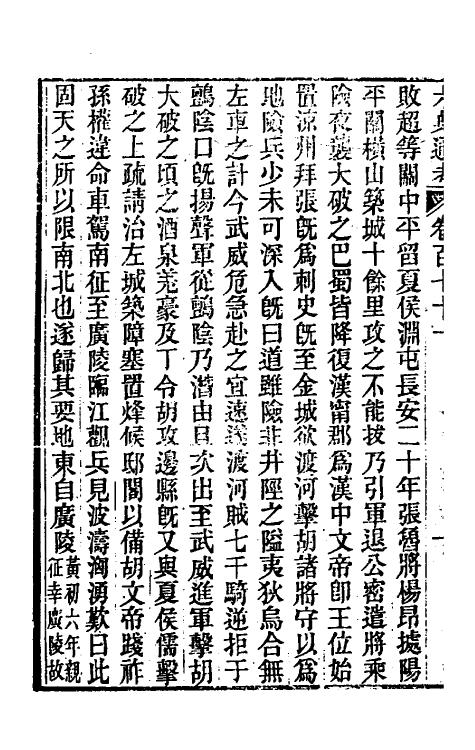 敗超等關中平留夏侯淵屯長安二十年張魯將楊昂據陽
平關橫山築城十餘里攻之不能拔乃引軍退公密遣將乘
險夜襲大破之巴蜀皆降復漢甯郡爲漢中文帝卽王位始
置涼州拜張旣爲刺史旣至金城欲渡河擊胡諸將守以爲
地險兵少未可深入旣曰道雖險非井陘之隘夷狄烏合無
左車之計今武威危急赴之宜速遂渡河賊七千騎逆拒于
鸇陰口旣揚聲軍從鸇陰乃潛由且次出至武威進軍擊胡
大破之頃之酒泉羌豪及丁令胡攻邊縣旣又與夏侯儒擊
破之上疏請治左城築障塞置烽候邸閣以備胡文帝踐祚
孫權違命車駕南征至廣陵臨江觀兵見波濤洶湧歎曰此
固天之所以限南北也遂歸其要地東自廣陵黃初六年親
征幸廣陵故